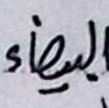 البيضاء